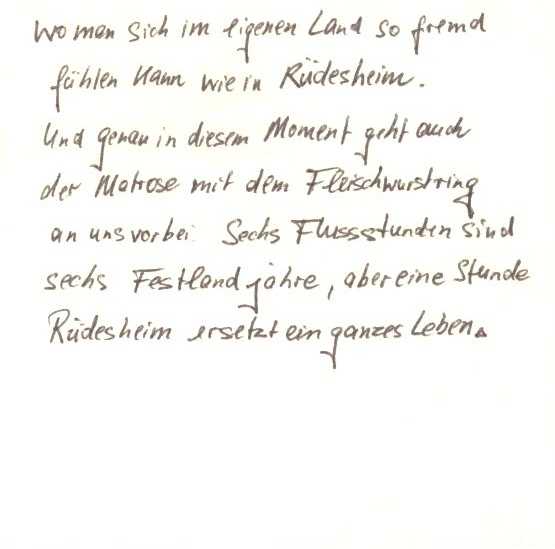 wo man sich im eigenen Land so fremd
fühlen kann wie in Rüdesheim.
Und genau in diesem Moment geht auch
der Matrose mit dem Fleischwurstring
an uns vorbei. Sechs Flussstunden sind
sechs Festlandjahre, aber eine Stunde
Rüdesheim ersetzt ein ganzes Leben.